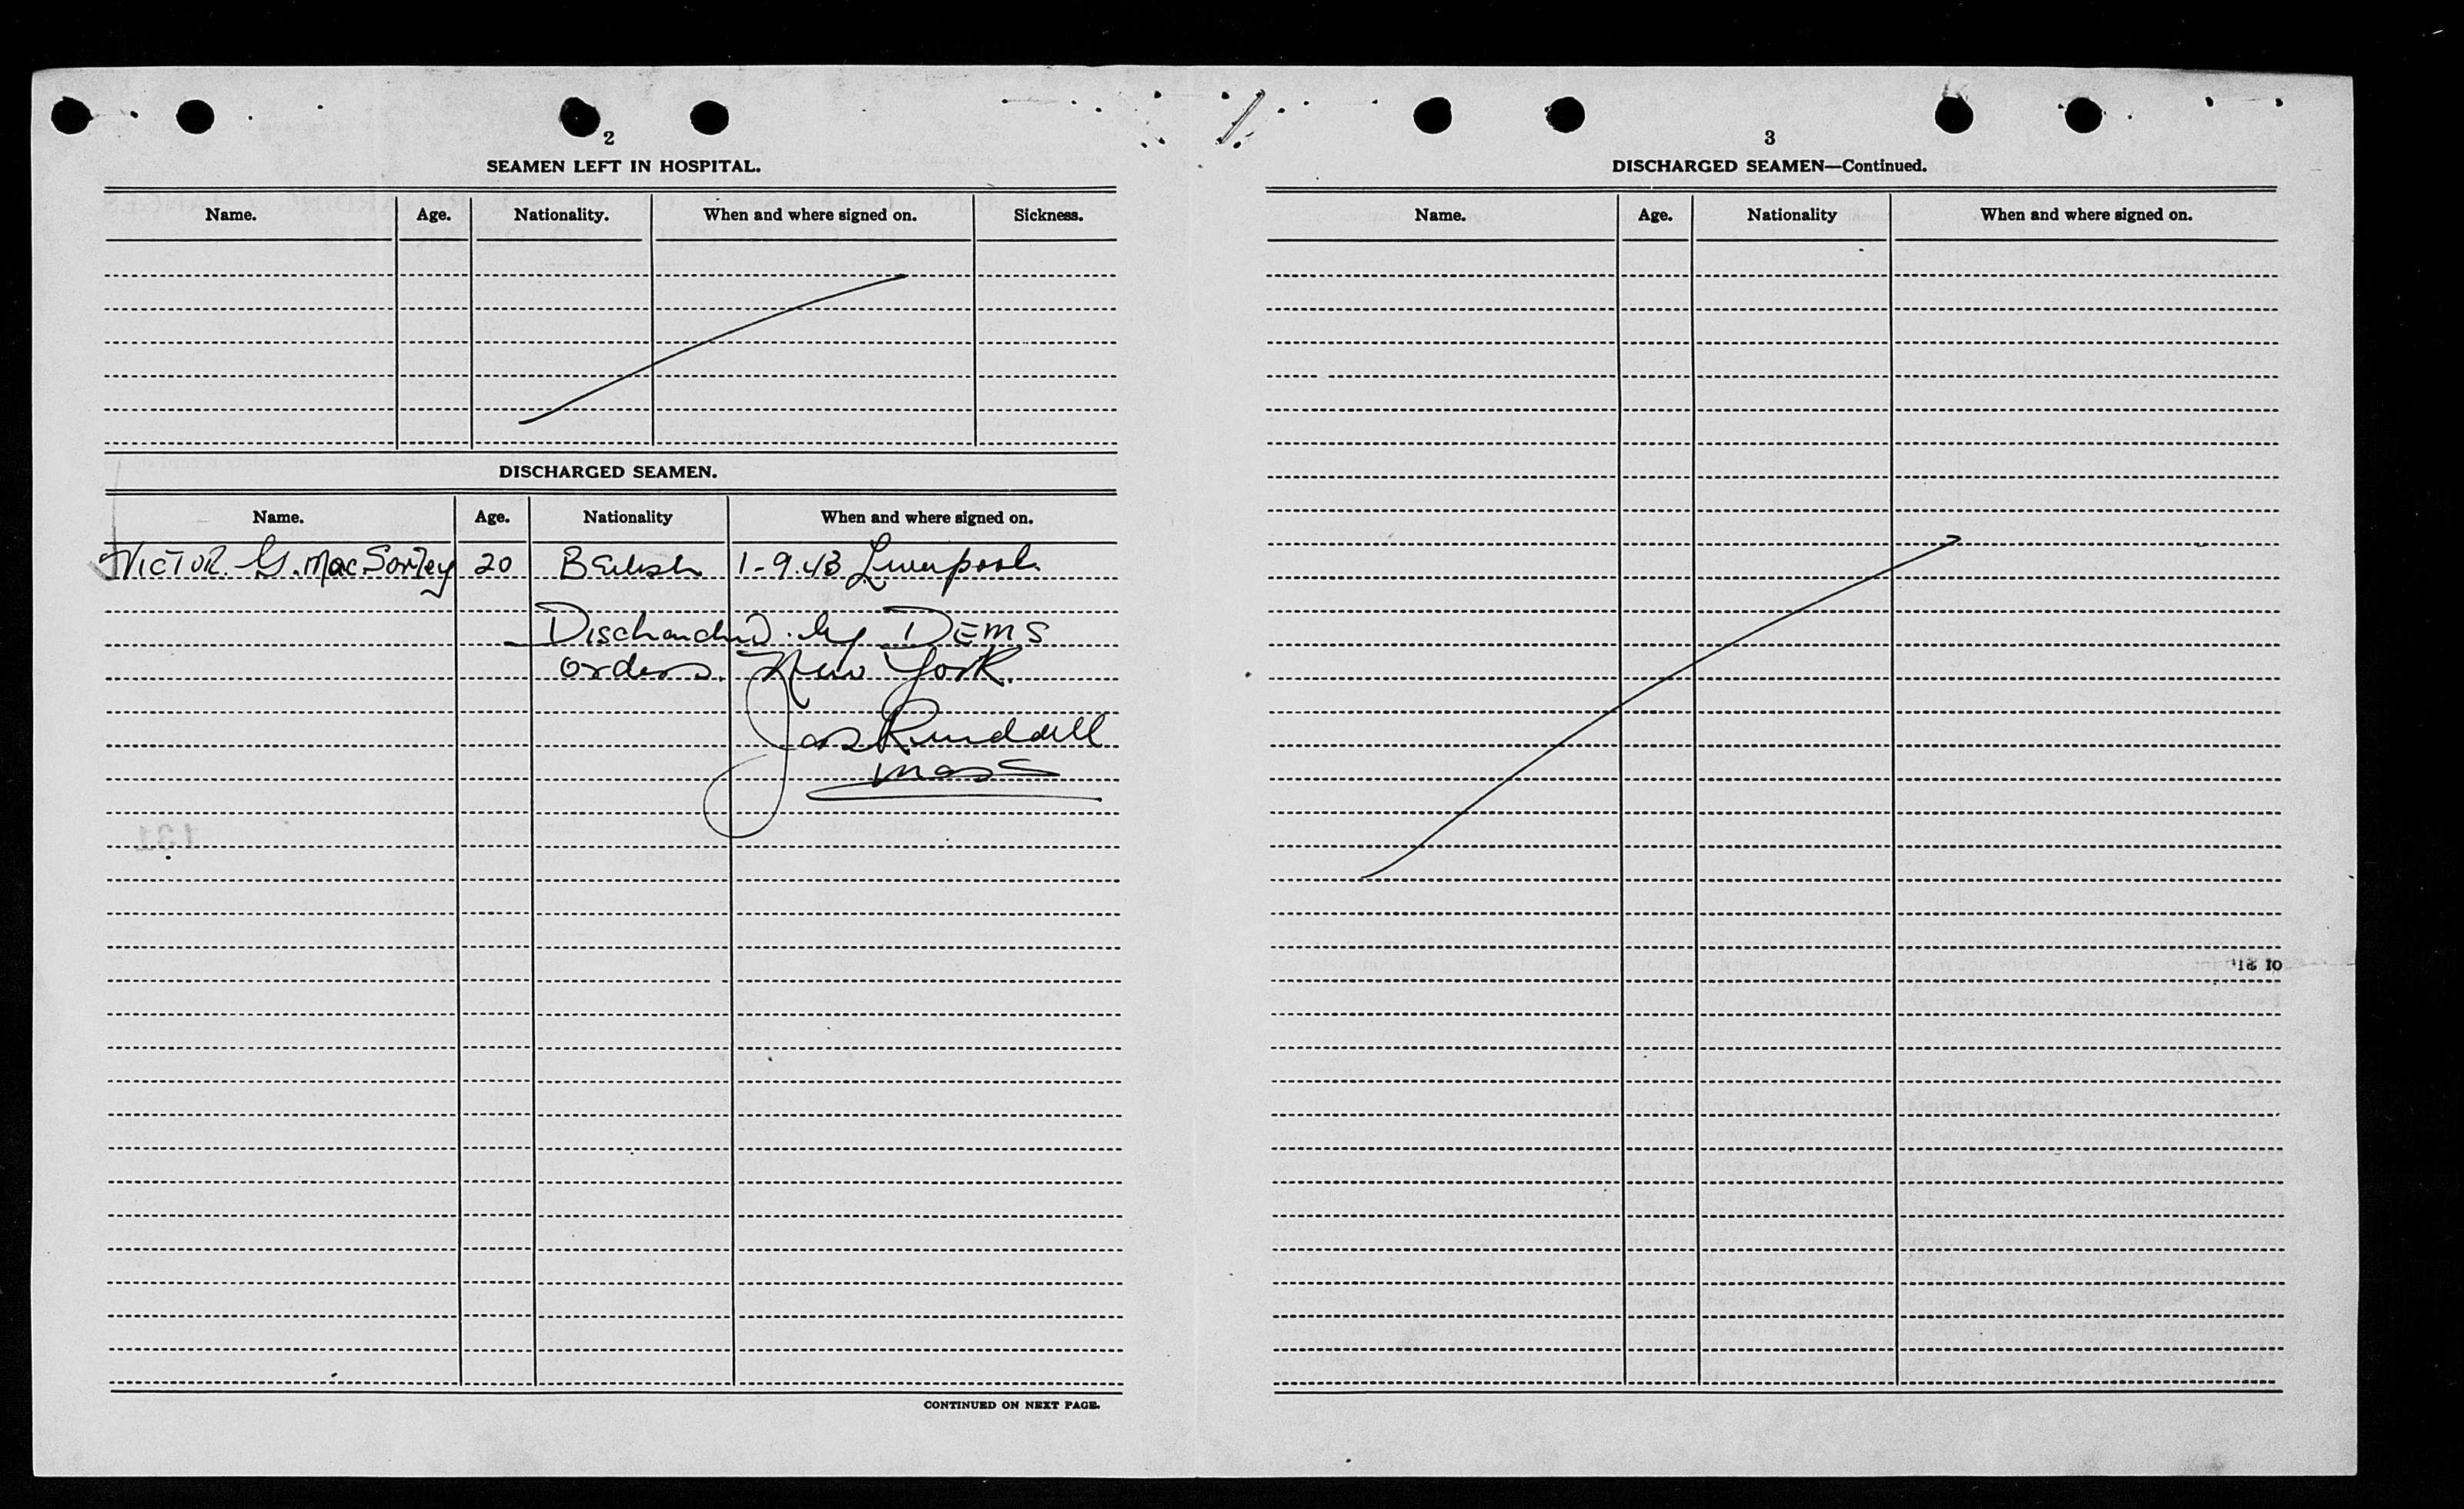 2
SEAMEN LEFT IN HOSPITAL.
Name. Age. Nationality. When and where signed on. Sickness.
DISCHARGED SEAMEN.
Name. Age. Nationality When and where signed on.
VICTOR. G. MacSorley 20 British 1-9.43 Liverpool
Discharched. by DEMS
orders. New York.
Jas Runddell
Mass
CONTINUED ON NEXT PAGE.
3
DISCHARGED SEAMEN—Continued.
Name. Age. Nationality When and where signed on.